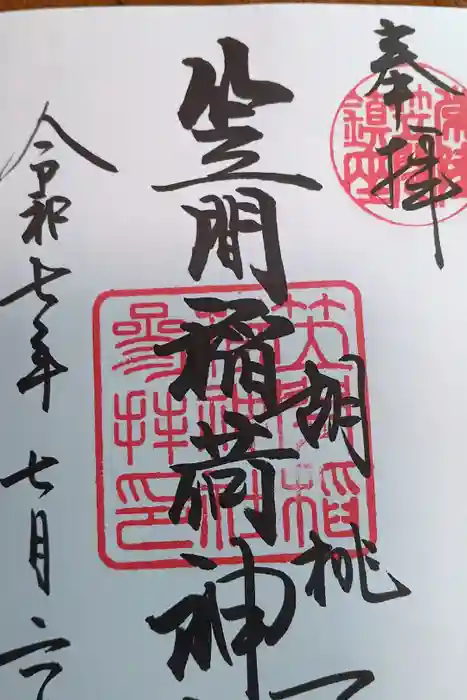 奉拝
胡桃
笠間稲荷神
令和七年七月六
笠間稲
荷神社
参拝印